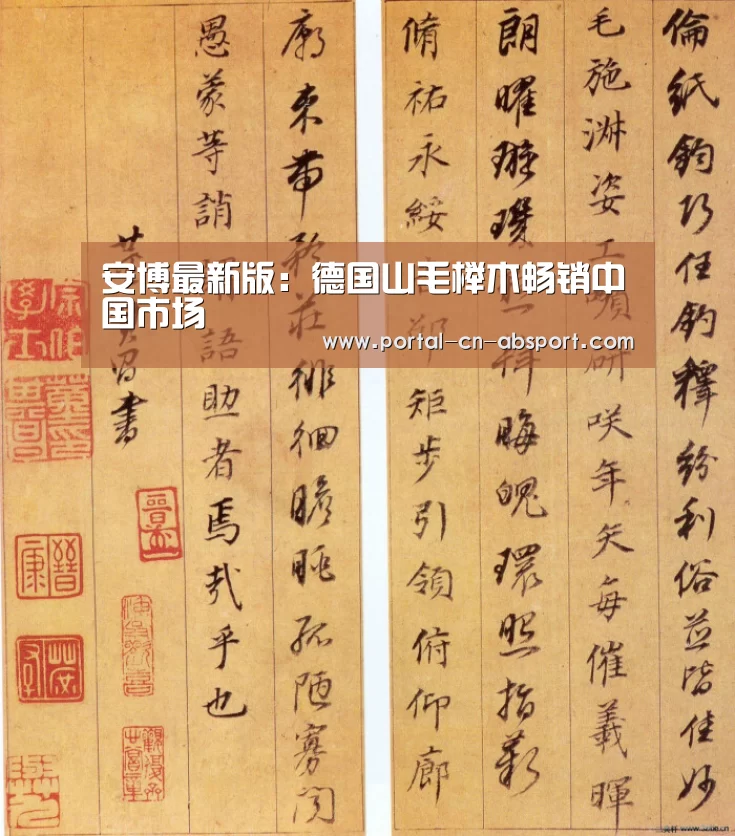 安博最新版：德国山毛榉木畅销中
国市场
www.portal-cn-absport.com
倫紙鈞巧任釣釋紛利俗並皆佳妙
毛施淑姿工顰研咲年矢每催義暉
朗曜璇璣晦魄環照指薪
脩祐永綏吉邵矩步引領俯仰廊
廟束帶矜莊徘徊瞻眺孤陋寡聞
愚蒙等誚謂語助者焉哉乎也
董其昌書